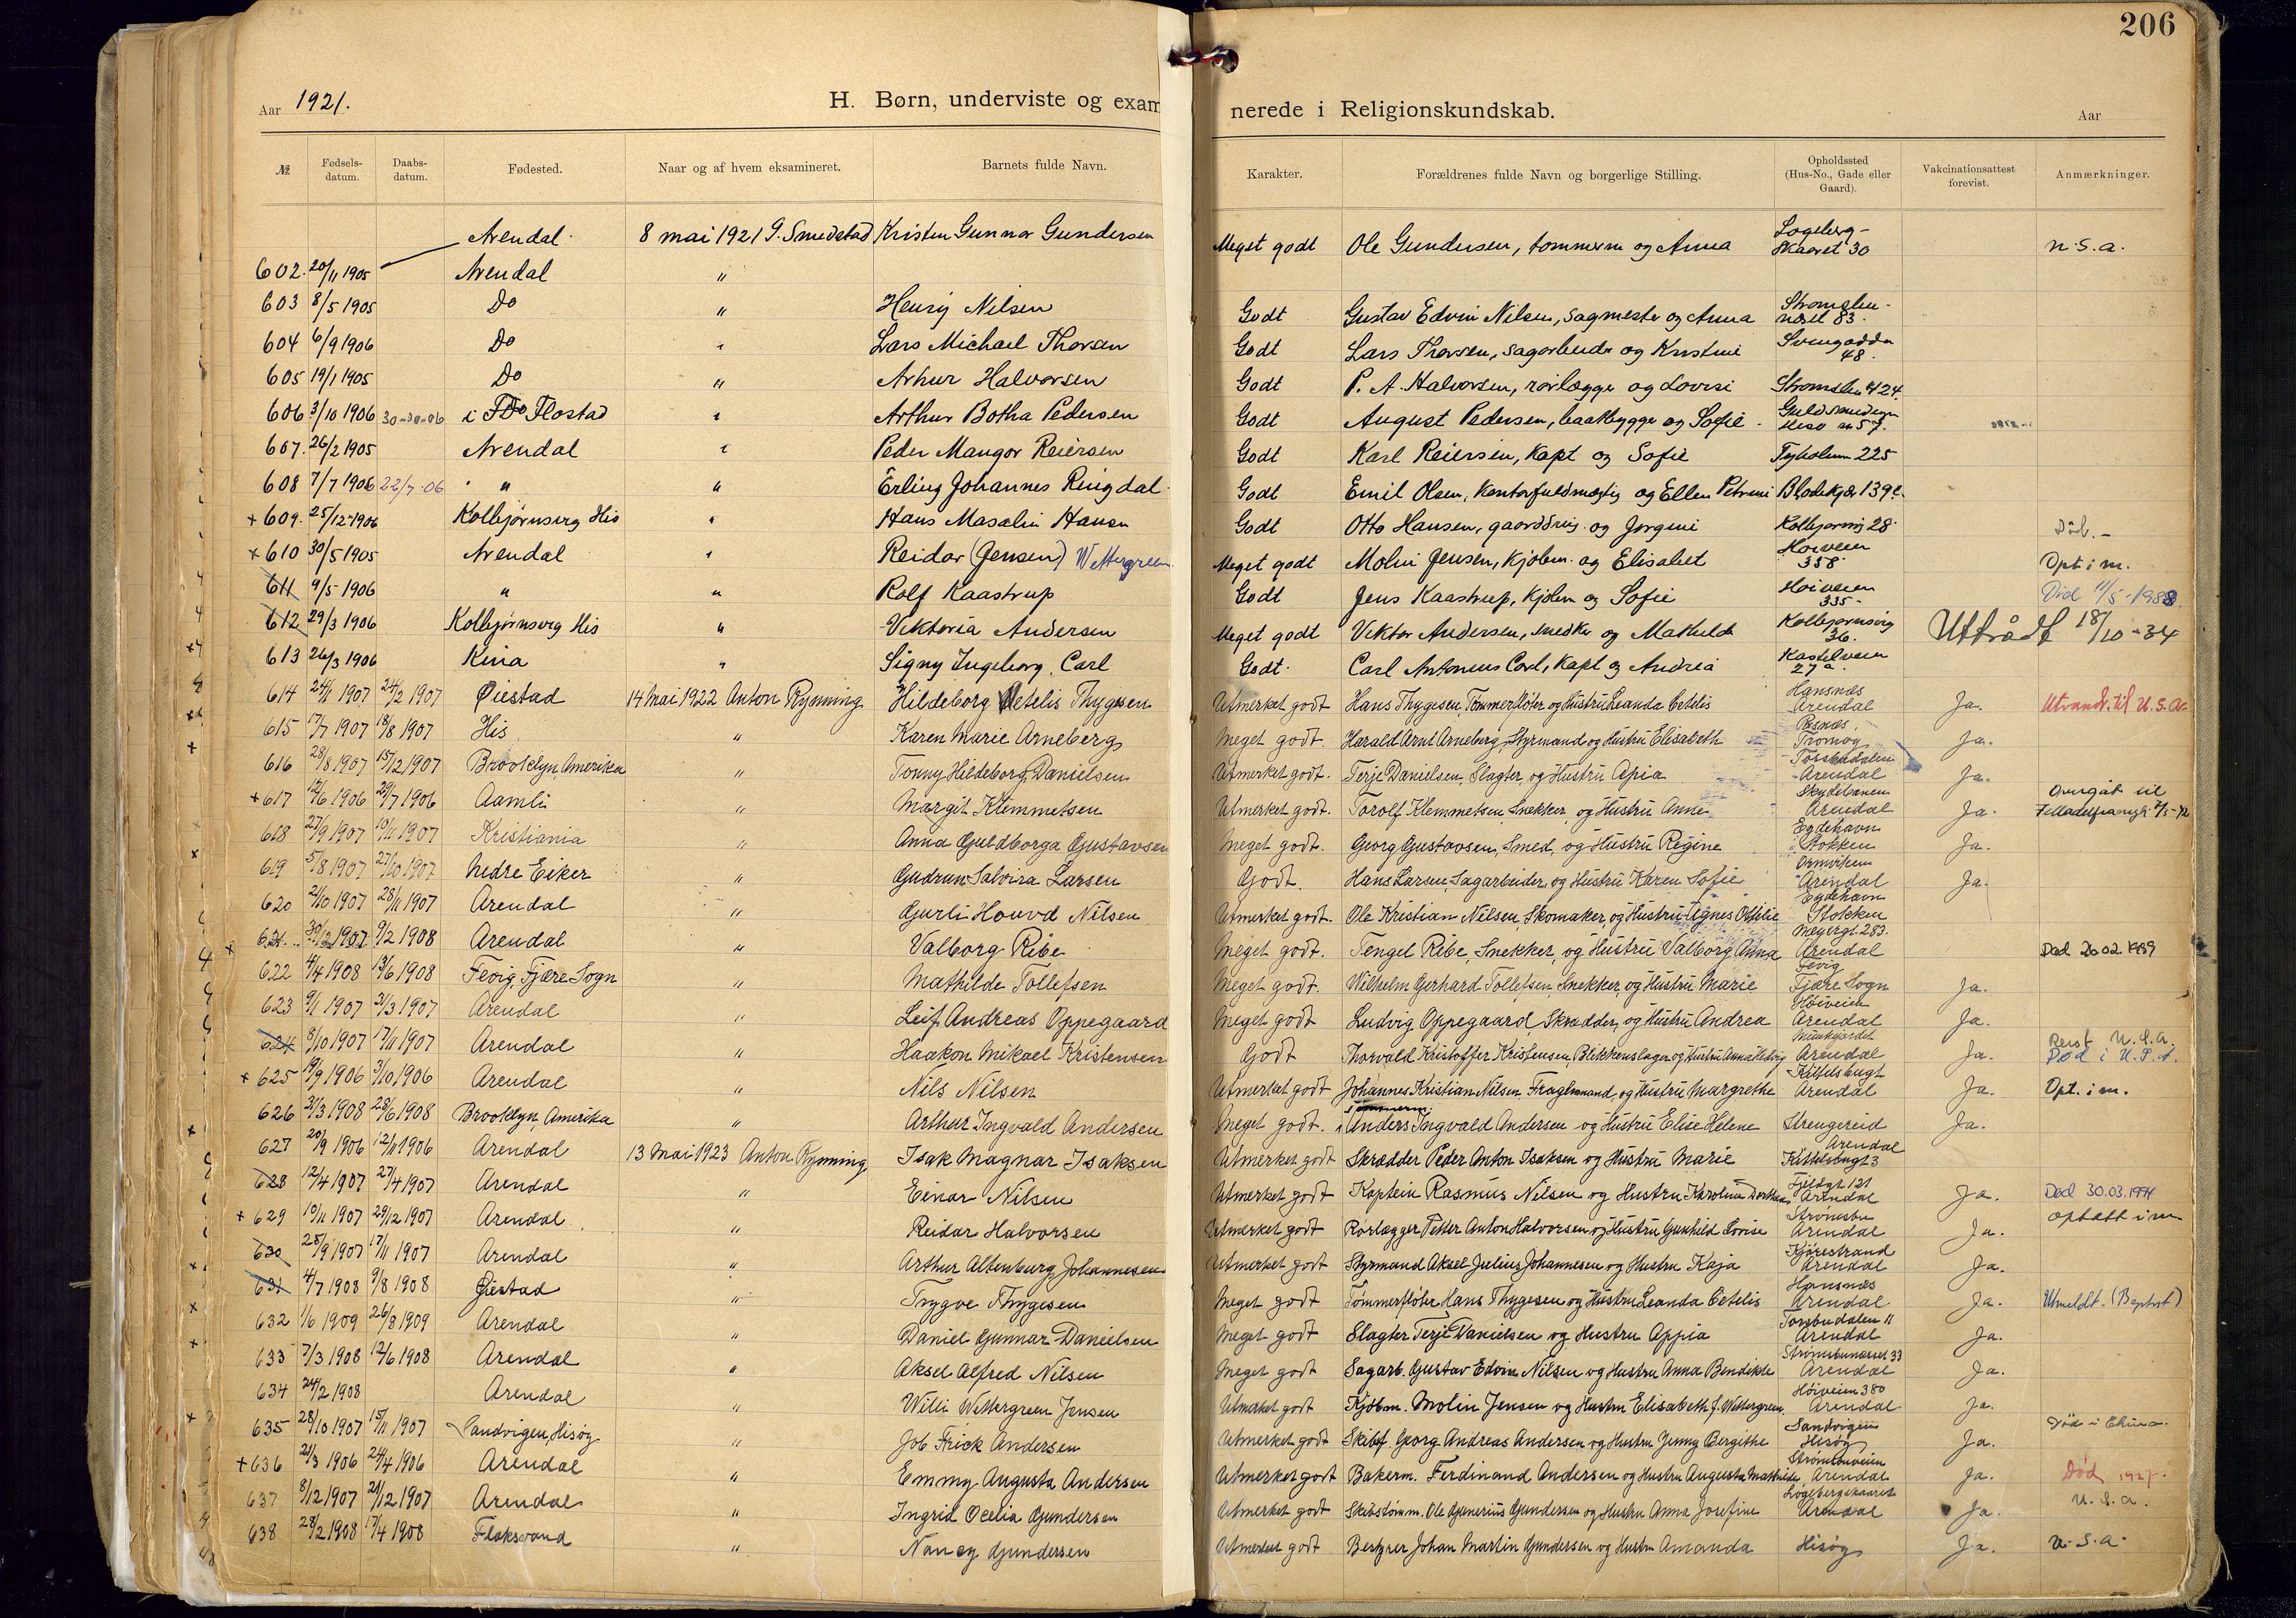 206
Aar 1921.
H. Børn, underviste og exami
nerede i Religionskundskab.
Aar
№ Fødsels-datum. Daabs-datum. Fødested. Naar og af hvem eksamineret. Barnets fulde Navn. Karakter. Forældrenes fulde Navn og borgerlige Stilling. Opholdssted (Hus-No., Gade eller Gaard). Vakcinationsattest forevist. Anmærkninger.
Arendal 8 mai 1921 G. Smedstad Kristen Gunnar Gundersen Meget godt Ole Gundersen, tømmerm og Anna Skaaret 30 U.S.a.
602. 20/11 1905 Arendal "
603 8/5 1905 Do " Henry Nilsen Godt Gustav Edvin Nilsen, sagmester og Anna 83.
604 6/9 1906 Do " Lars Michael Thorsen Godt Lars Thorsen, sagarbeider og Kristine 48.
605 19/1 1905 Do " Arhur Halvorsen Godt P. A. Halvorsen, rørlægger og Lovise
606 3/10 1906 i Flostad " Arthur Botha Pedersen Godt August Pedersen, baatbygger og Sofie
607. 26/2 1905 Arendal " Peder Mangor Reiersen Godt Karl Reiersen, Kapt og Sofie Tyholmen 225
608 7/7 1906 22/7-06 " " Erling Johannes Ringdal Godt Emil Olsen, Kontorfuldmægtig og Ellen Petrine Blødekjær 139
+ 609. 25/12-1906 Kolbjørnsvig His " Hans Masalin Hansen Godt Otto Hansen, og Jørgine Kolbjørnsvig 28 Død.-
+ 610 30/5 1905 Arendal " Reidar (Jensen) Wettergreen Meget godt Molin Jensen, kjøbm. og Elisabet Høiveien 358 Opt i m.
611 9/5 1906 " " Rolf Kaastrup Godt Jens Kaastrup, kjøbm og Sofie Høiveien 335 Død 11/5-1988.
612 29/3 1906 Kolbjørnsvig His " Viktoria Andersen Meget godt Viktor Andersen, snedker og Mathilde Kolbjørnsvig 36. Uttrådt 18/10-34
613 26/3 1906 Kina " Signy Ingeborg Carl Godt. Carl Antonius Carl, Kapt og Andrea Kastelveien 27a.
614 24/1 1907 24/2 1907 Øiestad 14 Mai 1922 Anton Rynning Hildeborg Cetelis Thygesen Utmerket godt Hans Thygesen, Tømmerfløter og Hustru Leanda Cetelis Hansnæs Arendal Ja. Utvandr. til U.S.A.
615 17/7 1907 18/8 1907 His. " Karen Marie Arneberg Meget godt. Harald Arnt Arneberg, Styrmand og Hustru Elisabeth Tromøy Ja.
616 28/8 1907 15/12 1907 Brooklyn Amerika " Tonny Hildeborg Danielsen Utmerket godt. Terje Danielsen, Slagter, og Hustru Apia Arendal Ja.
+ 617 12/6 1906 29/7 1906 Aamli " Margit Klemmetsen Utmerket godt. Torolf Klemmetsen, Snekker, og Hustru Anne Skydebanen Arendal Ja. Overgåt til
618 27/9 1907 10/11 1907 Kristiania " Anna Guldborga Gustavsen Meget godt. Georg Gustavsen, Smed, og Hustru Regine Eydehavn Stokken Ja.
619 5/8 1907 27/10 1907 Nedre Eiker " Gudrun Salvira Larsen Godt. Hans Larsen, Sagarbeider, og Hustru Karen Sofie Arendal Ja.
620 21/10 1907 28/11 1907 Arendal " Gurli Houvd Nilsen Utmerket godt. Ole Kristian Nilsen, Skomaker, og Hustru Agnes Othilie Eydehavn Stokken
621 30/12 1907 9/2 1908 Arendal " Valborg Ribe Meget godt. Tengel Ribe, Snekker, og Hustru Valborg Anna Meyergt. 283. Arendal Død 26.02.1989
622 4/4 1908 13/6 1908 Fevig, Fjære Sogn " Mathilde Tollefsen Meget godt. Wilhelm Gerhard Tollefsen, Snekker, og Hustru Marie Fevig Fjære Sogn Ja.
623 9/1 1907 31/3 1907 Arendal " Leif Andreas Oppegaard Meget godt Ludvig Oppegaard, Skrædder, og Hustru Andrea Høiveien Arendal Ja.
624 8/10 1907 17/11 1907 Arendal " Haakon Mikael Kristensen Godt Thorvald Kristoffer Kristensen, Blikkenslager og Hustru Anna Hedvig Arendal Ja. Reist U.S.A. Død i U.S.A.
+ 625 19/9 1906 3/10 1906 Arendal " Nils Nilsen Utmerket godt Johannes Kristian Nilsen, og Hustru Margrethe Kittelsbugt Arendal Ja. Opt. i m.
626 31/3 1908 28/6 1908 Brooklyn Amerika " Arthur Ingvald Andersen Meget godt. Tømmerm. Anders Ingvald Andersen og Hustru Elise Helene Strengereid Ja.
627 20/9 1906 12/11 1906 Arendal 13 Mai 1923 Anton Rynning Isak Magnar Isaksen Utmerket godt Skrædder Peder Anton Isaksen og Hustru Marie Arendal Kittelsbugt 3
628 12/4 1907 27/4 1907 Arendal " Einar Nilsen Utmerket godt Kaptein Rasmus Nilsen og Hustru Karoline Dorthea Fjeldgt 121 Arendal Ja. Død 30.03.1994
+ 629 10/11 1907 29/12 1907 Arendal " Reidar Halvorsen Utmerket godt Rørlægger Petter Anton Halvorsen og Hustru Gunhild Lovise Strømsbu Arendal Ja. optatt i m
630 28/9 1907 17/11 1907 Arendal " Arthur Altenburg Johannesen Utmerket godt Styrmand Aksel Julius Johannesen og Hustru Kaja Kjørestrand Arendal Ja.
631 4/7 1908 9/8 1908 Øiestad " Trygve Thygesen Meget godt Tømmerfløter Hans Thygesen og Hustru Leanda Cetelis Hansnæs Arendal Ja. Utmeldt. (Baptist)
632 1/6 1909 26/8 1909 Arendal " Daniel Gunnar Danielsen Meget godt Slagter Terje Danielsen og Hustru Appia Torsbudalen 11 Arendal Ja.
633 7/3 1908 12/6 1908 Arendal " Aksel Alfred Nilsen Meget godt Sagarb. Gustav Edvin Nilsen og Hustru Anna Bendikte Strømsbunesset 33 Arendal Ja.
634 24/2 1908 Arendal " Willi Wettergreen Jensen Utmerket godt Kjøbm. Molin Jensen og Hustru Elisabeth f. Wettergreen Høiveien 380 Arendal Ja.
635 28/10 1907 15/11 1907 Sandvigen, Hisøy " Job Frick Andersen Utmerket godt Skibsf. Georg Andreas Andersen og Hustru Jenny Bergithe Sandvigen Hisøy Ja. Død i China.
+ 636 21/3 1906 24/4 1906 Arendal " Emmy Augusta Andersen Utmerket godt Bakerm. Ferdinand Andersen og Hustru Augusta Mathilde Strømsbuveien Arendal Ja. Død 1927.
637 8/12 1907 21/12 1907 Arendal " Ingrid Ocelia Gundersen Utmerket godt Skibstømm. Ole Gunerius Gundersen og Hustru Anna Josefine Løgebergskaaret Arendal Ja. U.S.a.
638 28/2 1908 17/4 1908 Flaksvand " Nancy Gundersen Utmerket godt Bestyrer Johan Martin Gundersen og Hustru Amanda Hisøy Ja. U.S.a.